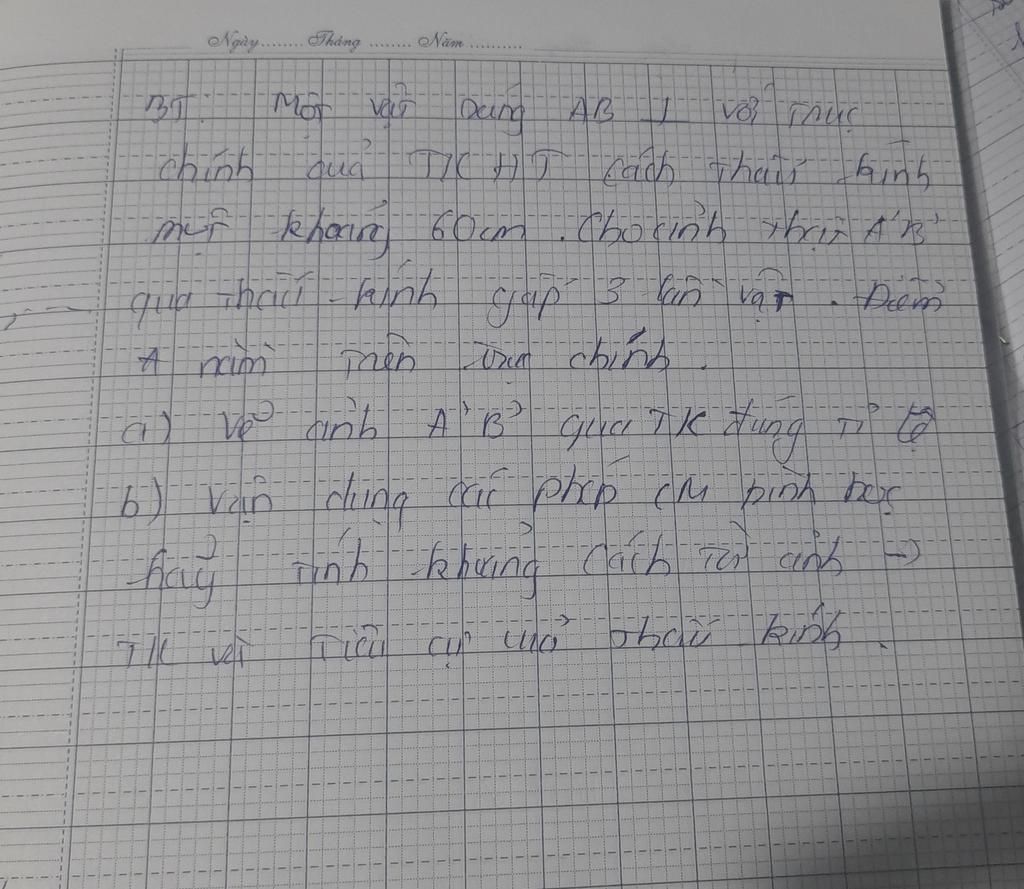 Ngày........ Tháng ........ Năm ..........
BT: Một vật sáng AB ⊥ với trục
chính của TKHT cách thấu kính
một khoảng 60cm. Cho ảnh thật A'B'
qua thấu kính gấp 3 lần vật. Điểm
A nằm trên trục chính.
a) Vẽ ảnh A'B' qua TK đúng tỉ lệ
b) Vận dụng các phép CM hình học
hãy tính khoảng cách từ ảnh →
TK và tiêu cự của thấu kính.